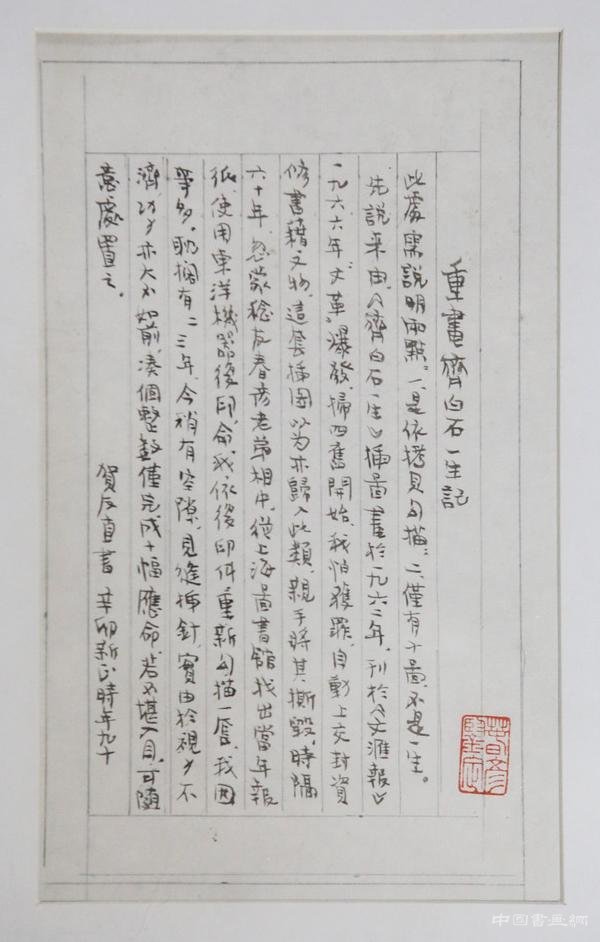 重畫齊白石一生記
此處需說明兩點。一、是依拷貝勾描。二、僅有十圖、不是一生。
先說來由、《齊白石一生》插圖畫於一九六二年、刊於《文滙報》
一九六六年、"文革"爆發、掃四舊開始、我怕獲罪、自動上交封資
修書籍文物、這套插圖以为亦歸入此類、親手將其撕毁、時隔
六十年、忽蒙稔友春彦老弟相中、從上海圖書館找出當年報
紙、使用東洋機器後印、命我依後印件重新勾描一唇、我因
年多、耽擱有二三年、今稍有空隙、見縫插針、實由於視力不
濟、功力亦大不如前、湊個整數僅完成十幅應命、若不堪入目、可隨
意處置之。
賀友直書 辛卯新正時年九十
中国書画網